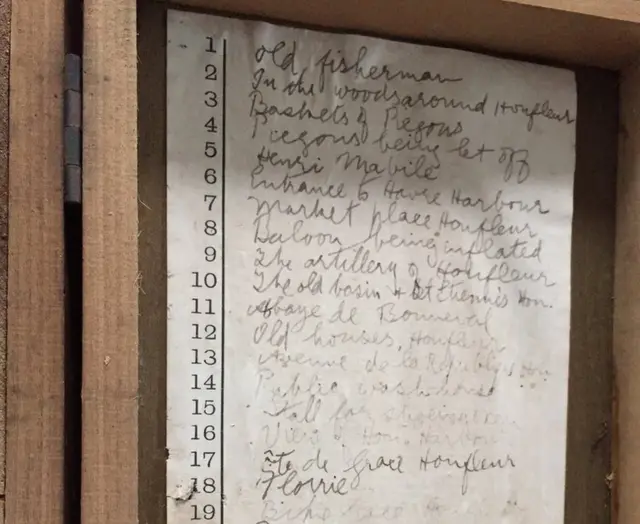 1 Old fisherman
2 In the woods around Honfleur
3 Baskets of Pegons
4 Piegons being let off
5 Henri Mabile
6 Entrance to Havre Harbour
7 Market place Honfleur
8 Baloon being inflated
9 The artillery of Honfleur
10 The old basin + St Etennis Hon.
11 Abbaye de Bonneval
12 Old houses, Honfleur
13 Avenue de la République Hon
14 Public wash house
15 Stall for
16 View of Hon. Harbour
17 Côte de Grace Honfleur
18 Florrie
19